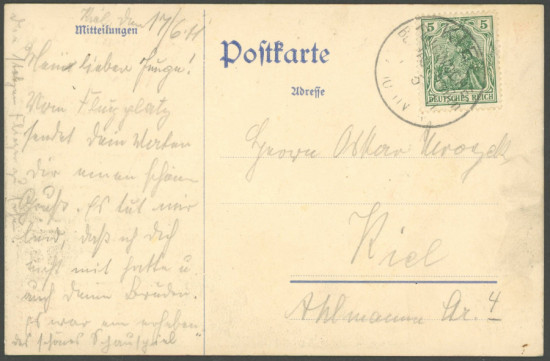 Kiel den 17/6.11
Mitteilungen
Mein lieber Junge!
Vom Flugplatz
sendet dein Vater
Dir einen schönen
Gruß. Es tut mir
leid, daß ich Dich
nicht mit hatte u.
auch deine Brüder.
Es war ein erheben
des schönes Schauspiel
Postkarte
Adresse
5 5
DEUTSCHES REICH
Herrn Oskar
Kiel
Ahlmannstr. 4